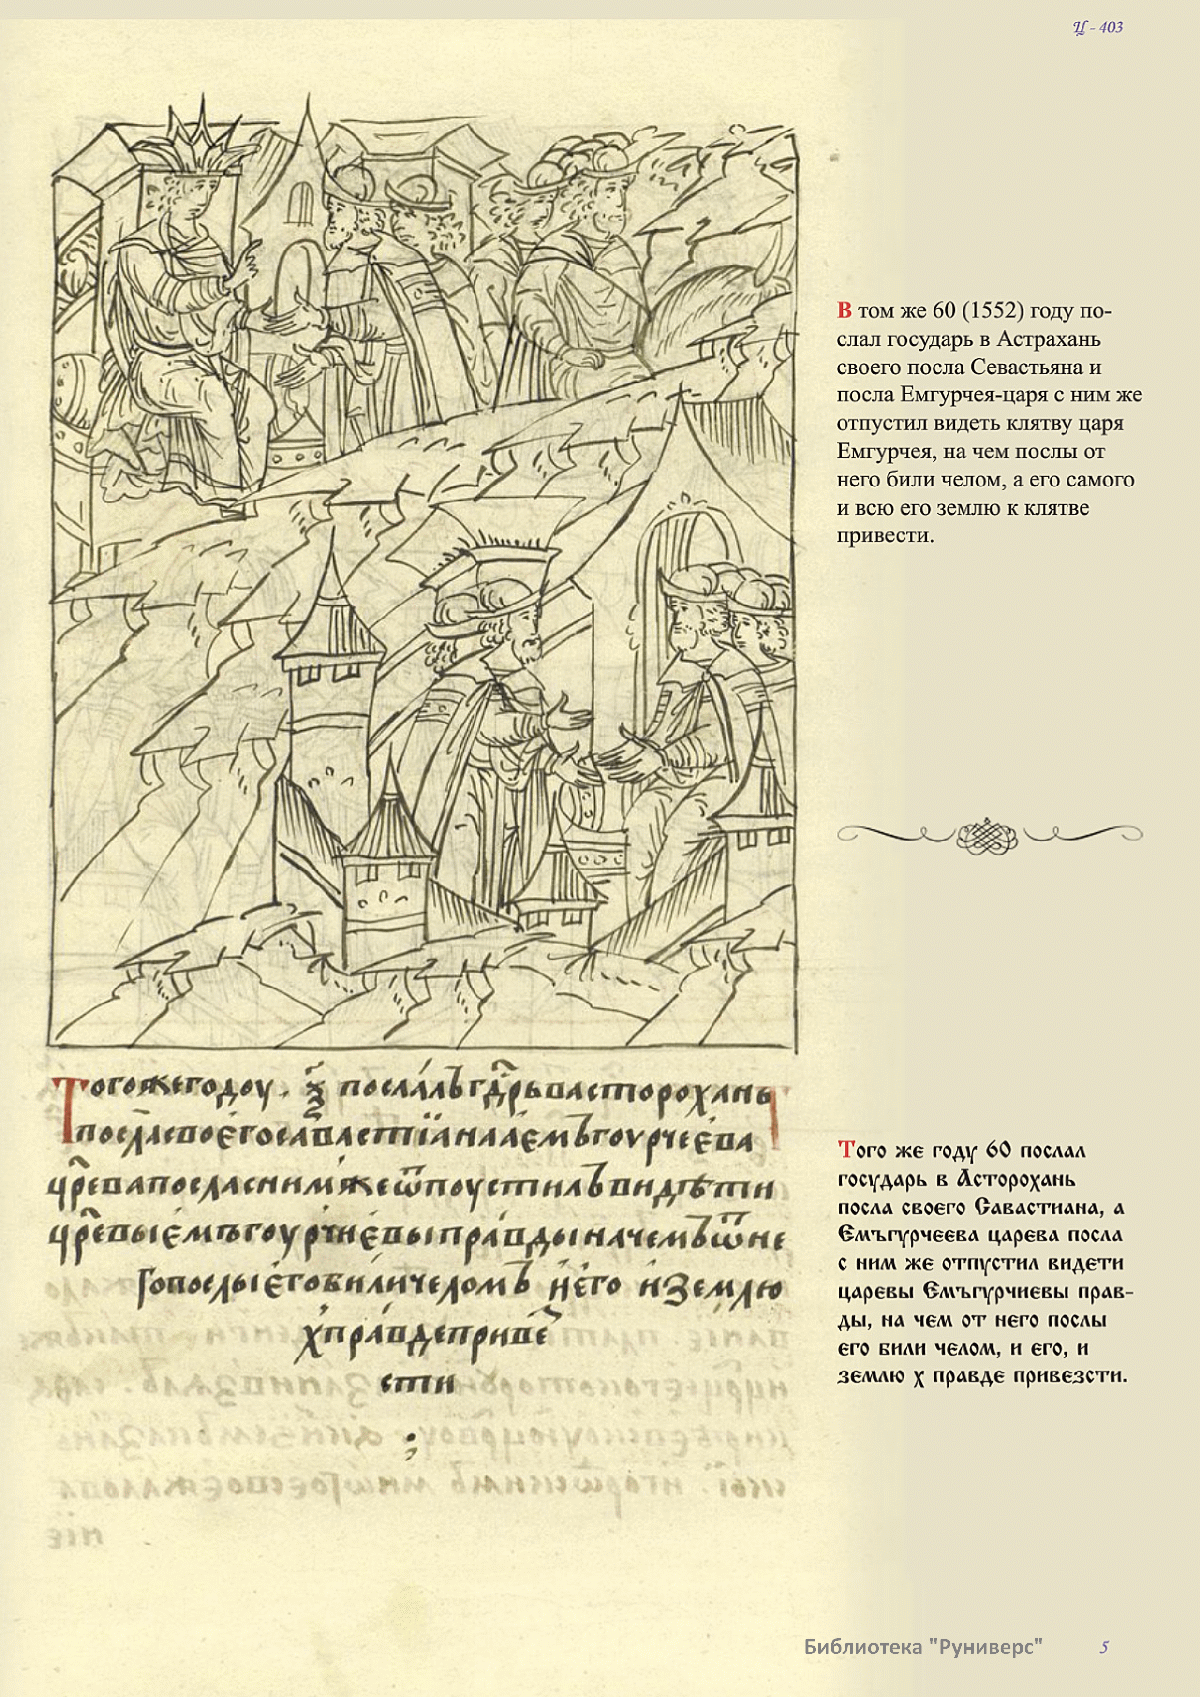 Ц - 403
В том же 60 (1552) году по-
слал государь в Астрахань
своего посла Севастьяна и
посла Емгурчея-царя с ним же
отпустил видеть клятву царя
Емгурчея, на чем послы от
него били челом, а его самого
и всю его землю к клятве
привести.
Тогожегодоу . ѯ҃ послалъгдⷭ҇рьвасторохань
посласвоегосавастїанааемъгоурчеева
црⷭ҇евапосласнимжеѿпоустилъвидѣти
црⷭ҇евыемъгоурчїевыправдыначемъѿне
гопослыегобиличеломъ иего иземлю
хправдеприве
сти
Того же году 60 послал
государь в Асторохань
посла своего Савастиана, а
Емъгурчеева царева посла
с ним же отпустил видети
царевы Емъгурчиевы прав-
ды, на чем от него послы
его били челом, и его, и
землю х правде привезсти.
Библиотека "Руниверс" 5